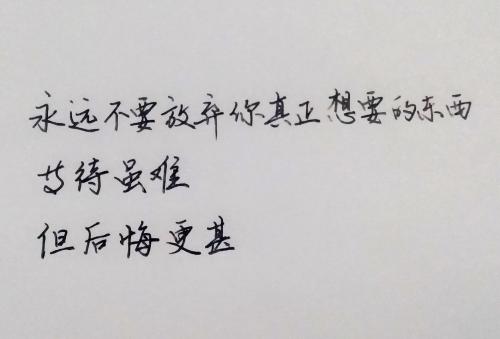 永远不要放弃你真正想要的东西
等待虽难
但后悔更甚